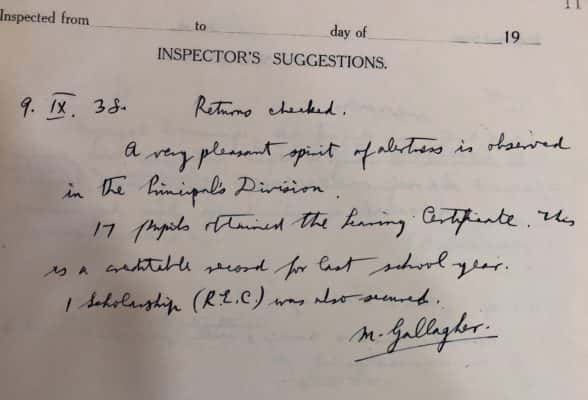 11
Inspected from to day of 19
INSPECTOR'S SUGGESTIONS.
9. IX. 38. Returns checked.
A very pleasant spirit of alertness is observed
in the Principal's Division.
17 pupils obtained the Leaving Certificate. This
is a creditable record for last school year.
1 Scholarship (R.L.C) was also secured.
M. Gallagher.